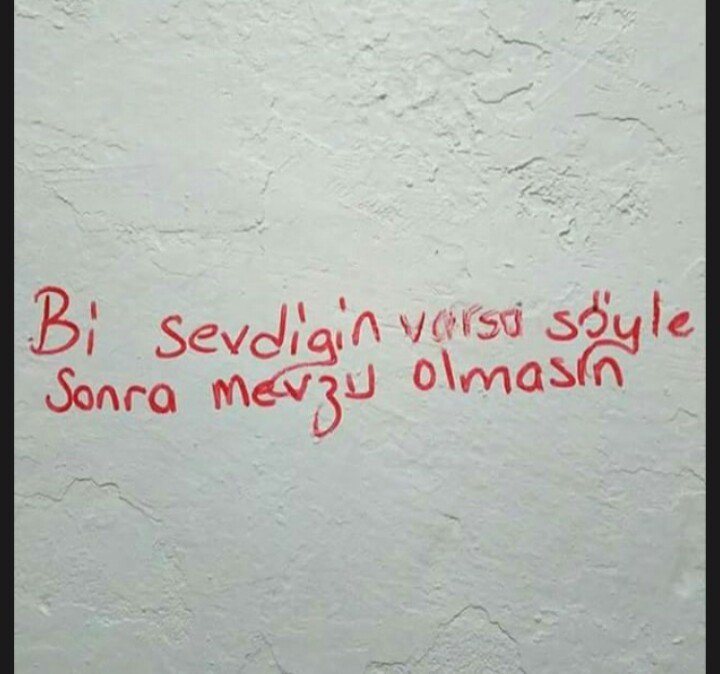 Bi sevdigin varsa söyle
Sonra mevzu olmasın